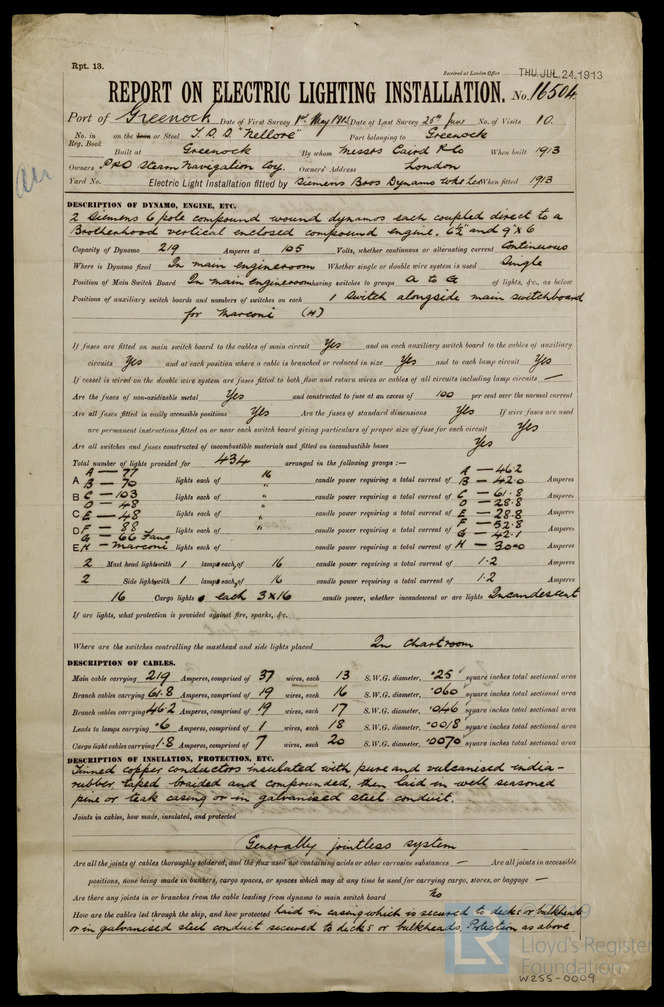 Rpt. 13.
Received at London Office THU. JUL. 24, 1913
REPORT ON ELECTRIC LIGHTING INSTALLATION. No. 16504
Port of Greenock Date of First Survey 1st May 1912 Date of Last Survey 25th June No. of Visits 10
No. in Reg. Book on the Iron or Steel T.S.S. "Nellore" Port belonging to Greenock
Built at Greenock By whom Messrs Caird & Co When built 1913
Owners P&O Steam Navigation Coy. Owners' Address London
Yard No. Electric Light Installation fitted by Siemens Bros Dynamo Wks Ld When fitted 1913
DESCRIPTION OF DYNAMO, ENGINE, ETC.
2 Siemens 6 pole compound wound dynamos each coupled direct to a
Brotherhood vertical enclosed compound engine. 6½" and 9" x 6
Capacity of Dynamo 219 Amperes at 105 Volts, whether continuous or alternating current Continuous
Where is Dynamo fixed In main engineroom Whether single or double wire system is used Single
Position of Main Switch Board In main engineroom having switches to groups A to G of lights, &c., as below
Positions of auxiliary switch boards and numbers of switches on each 1 switch alongside main switchboard
for Marconi (H)
If fuses are fitted on main switch board to the cables of main circuit Yes and on each auxiliary switch board to the cables of auxiliary
circuits Yes and at each position where a cable is branched or reduced in size Yes and to each lamp circuit Yes
If vessel is wired on the double wire system are fuses fitted to both flow and return wires or cables of all circuits including lamp circuits —
Are the fuses of non-oxidizable metal Yes and constructed to fuse at an excess of 100 per cent over the normal current
Are all fuses fitted in easily accessible positions Yes Are the fuses of standard dimensions Yes If wire fuses are used
are permanent instructions fitted on or near each switch board giving particulars of proper size of fuse for each circuit Yes
Are all switches and fuses constructed of incombustible materials and fitted on incombustible bases Yes
Total number of lights provided for 434 arranged in the following groups :—
A — 77 16 A — 46.2
A B — 70 lights each of " candle power requiring a total current of B — 42.0 Amperes
B C — 103 lights each of " candle power requiring a total current of C — 61.8 Amperes
D — 48 " D — 28.8
C E — 48 lights each of " candle power requiring a total current of E — 28.8 Amperes
D F — 88 lights each of " candle power requiring a total current of F — 52.8 Amperes
G — 66 Fans G — 42.1
E H — Marconi lights each of candle power requiring a total current of H — 30.00 Amperes
2 Mast head lights with 1 lamps each, of 16 candle power requiring a total current of 1.2 Amperes
2 Side lights with 1 lamps each, of 16 candle power requiring a total current of 1.2 Amperes
16 Cargo lights of each 3x16 candle power, whether incandescent or arc lights Incandescent
If arc lights, what protection is provided against fire, sparks, &c.
Where are the switches controlling the masthead and side lights placed In Chartroom
DESCRIPTION OF CABLES.
Main cable carrying 219 Amperes, comprised of 37 wires, each 13 S.W.G. diameter, .25 square inches total sectional area
Branch cables carrying 61.8 Amperes, comprised of 19 wires, each 16 S.W.G. diameter, .060 square inches total sectional area
Branch cables carrying 46.2 Amperes, comprised of 19 wires, each 17 S.W.G. diameter, .046 square inches total sectional area
Leads to lamps carrying .6 Amperes, comprised of 1 wires, each 18 S.W.G. diameter, .0018 square inches total sectional area
Cargo light cables carrying 1.8 Amperes, comprised of 7 wires, each 20 S.W.G. diameter, .0070 square inches total sectional area
DESCRIPTION OF INSULATION, PROTECTION, ETC.
Tinned copper conductors insulated with pure and vulcanised india-
rubber taped braided and compounded, then laid in well seasoned
pine or teak casing or in galvanised steel conduit.
Joints in cables, how made, insulated, and protected
Generally jointless system
Are all the joints of cables thoroughly soldered, and the flux used not containing acids or other corrosive substances — Are all joints in accessible
positions, none being made in bunkers, cargo spaces, or spaces which may at any time be used for carrying cargo, stores, or baggage —
Are there any joints in or branches from the cable leading from dynamo to main switch board No
How are the cables led through the ship, and how protected laid in casing which is secured to decks or bulkheads
or in galvanised steel conduit secured to decks or bulkheads. Protection as above
LR
Lloyd's Register
Foundation
W255-0009